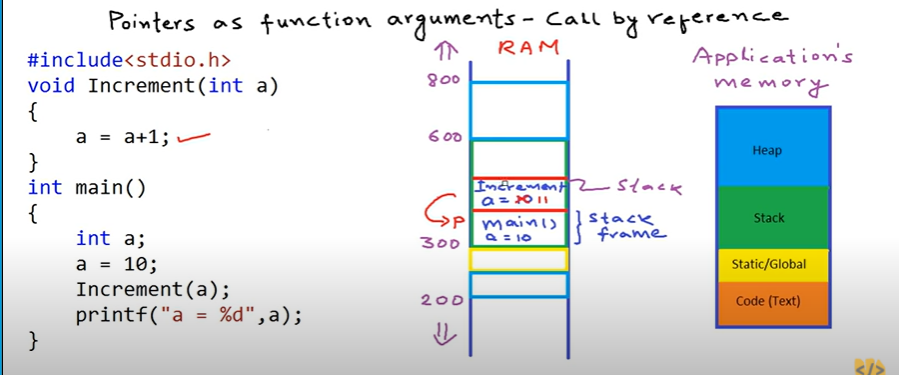 Pointers as function arguments - Call by reference
#include<stdio.h>
void Increment(int a)
{
a = a+1;
}
int main()
{
int a;
a = 10;
Increment(a);
printf("a = %d",a);
}
RAM
800
600
Increment
a = 10 11
Stack
P
main()
a = 10
stack
frame
300
200
Application's
memory
Heap
Stack
Static/Global
Code (Text)
</>